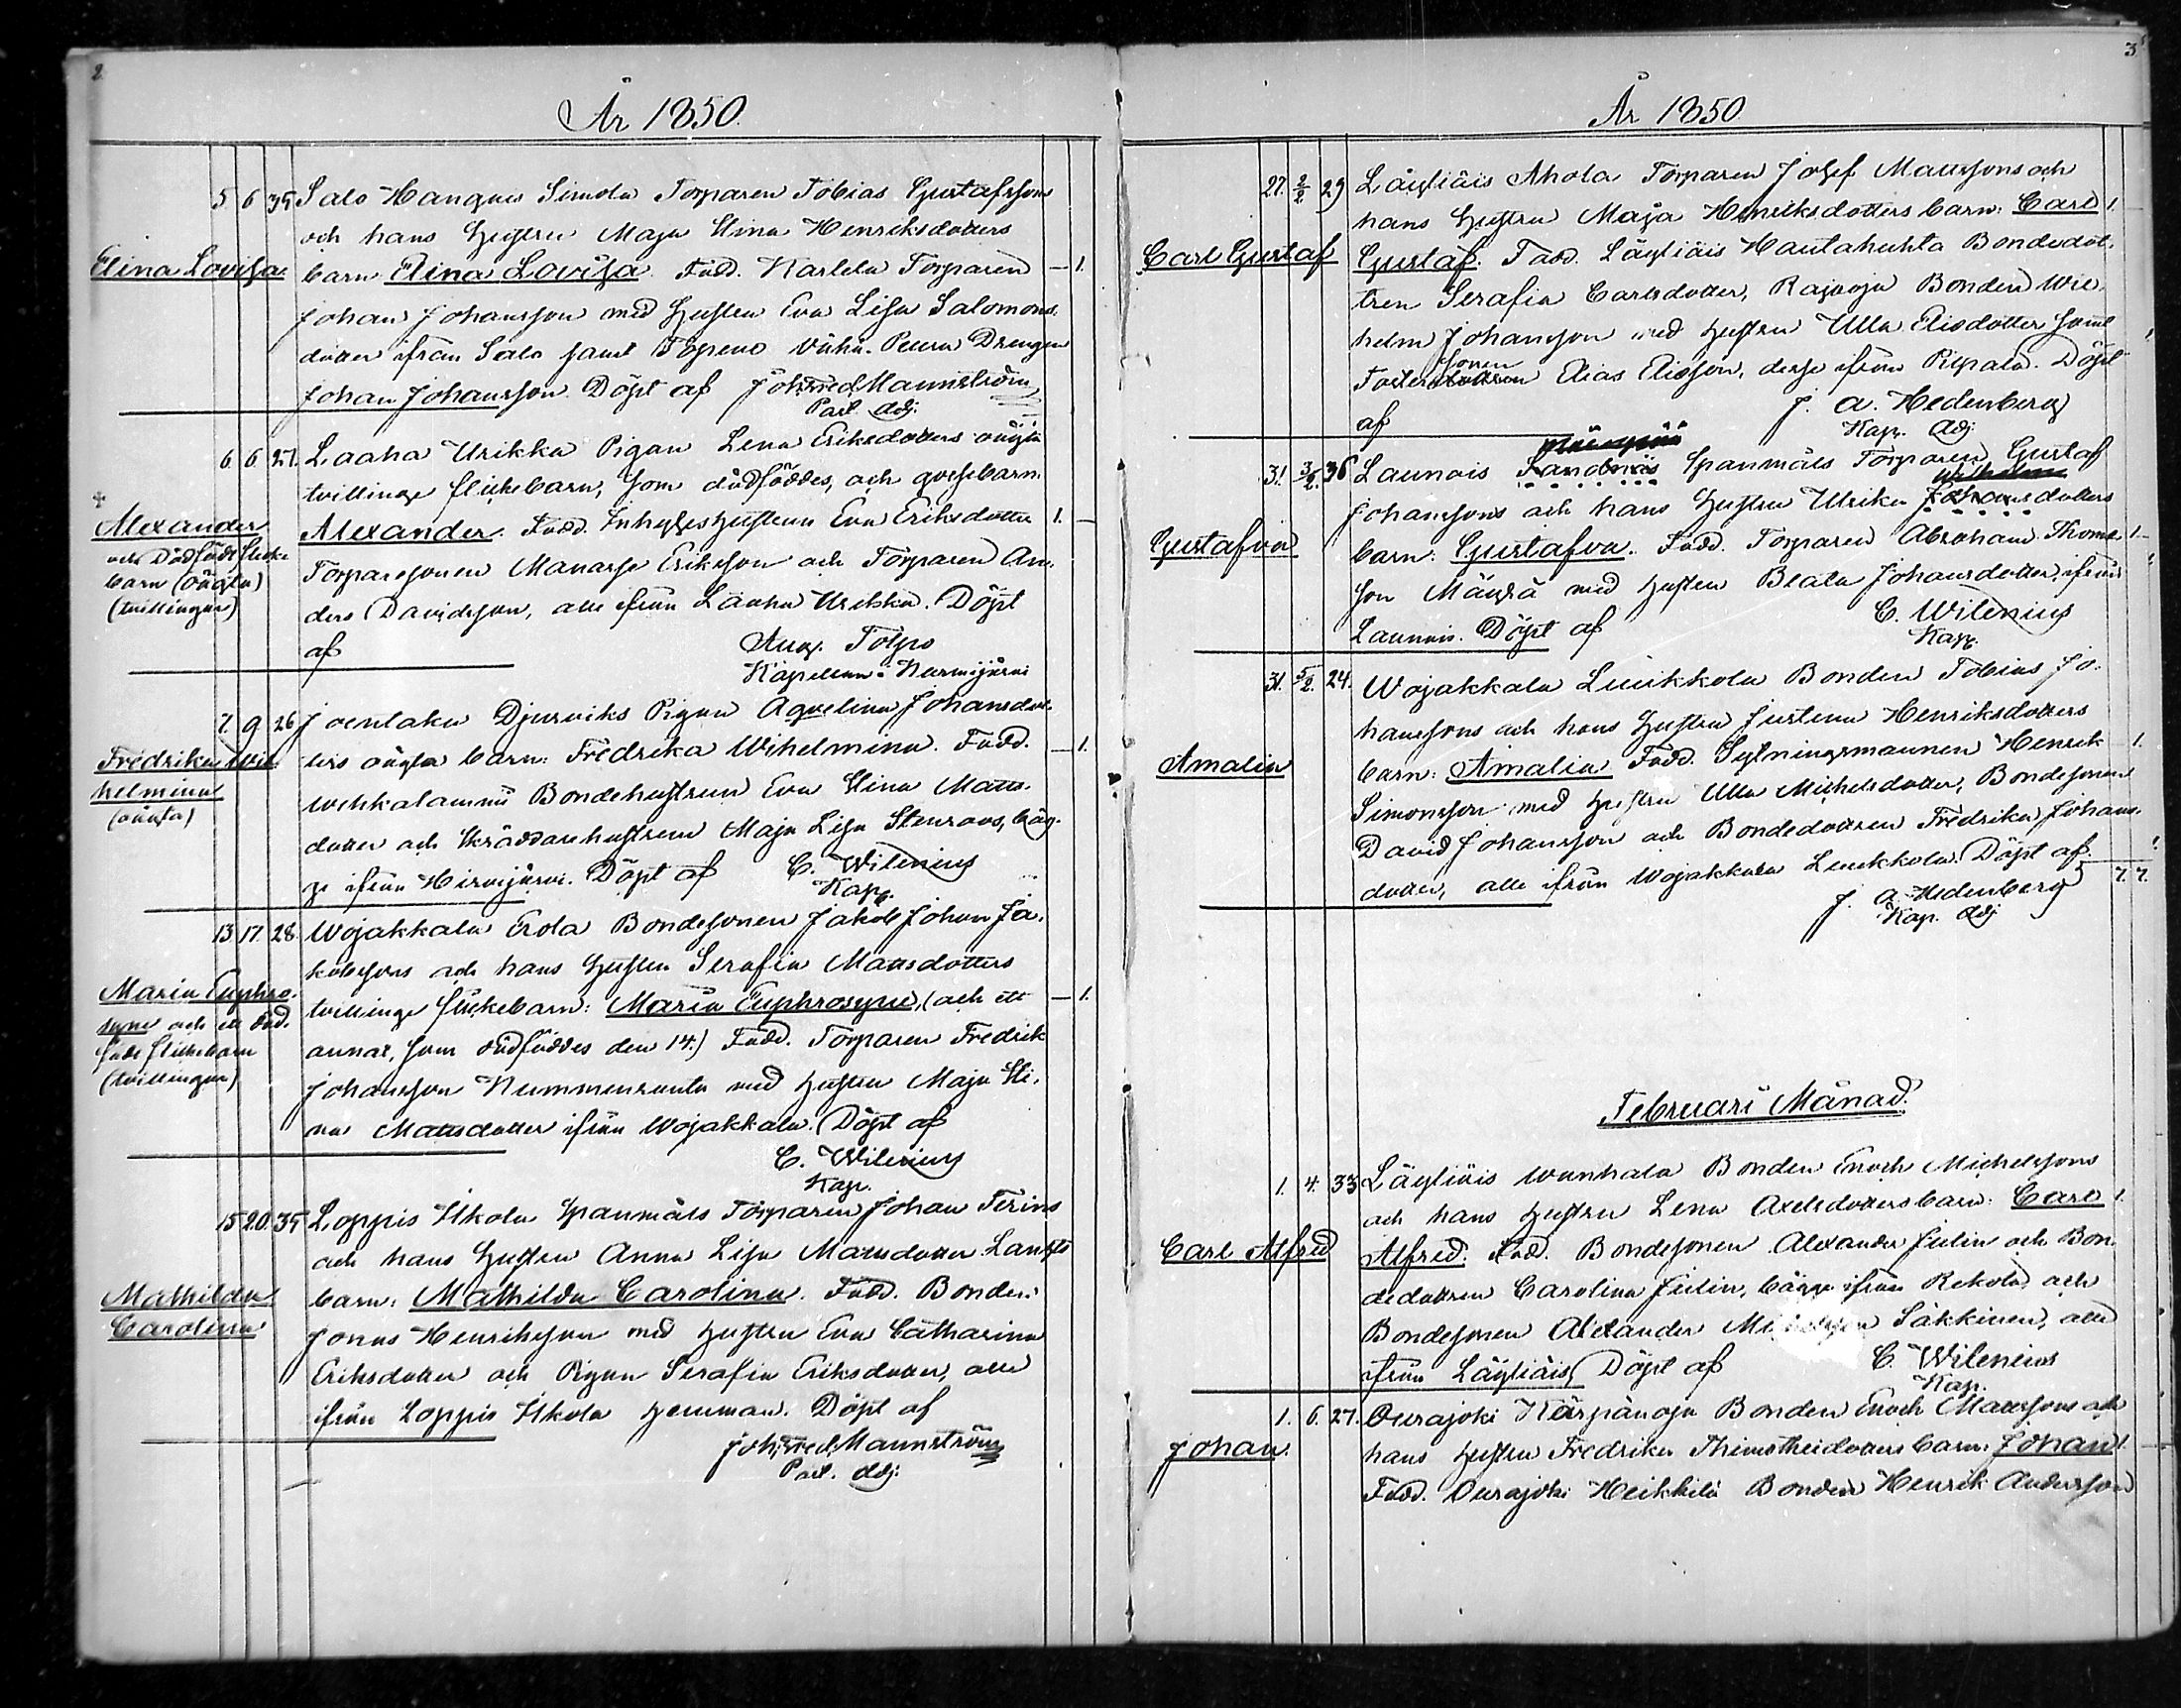 2
År 1850.
5 6 35 Salo Hanquis Simola Torparen Tobias Gustafssons
och hans Hustru Maja Stina Henriksdotters
Elina Lovisa. barn Elina Lovisa. Fadd. Karlela Torparen — 1.
Johan Johansson med Hustru Eva Lisa Salomons-
dotter ifrån Salo samt Topeno Vähä-Peura Drengen
Johan Johansson. Döpt af Joh. Fred. Mannström
Past. Adj.
6. 6. 27. Laaha Urikka Pigan Lena Eriksdotters oägta
tvillinge flickebarn, som dödföddes, och gossebarn.
Alexander Alexander. Fadd. Inhyseshustrun Eva Eriksdotter 1. —
och Dödfödt flicke-
barn (oägta) Torparesonen Manasse Eriksson och Torparen An-
(tvillingar) ders Davidsson, alle ifrån Laaha Urikka. Döpt
af Aug. Tolpo
Kapellan i Nurmijärvi
7. 9. 26 Joentaka Djurviks Pigan Aqvelina Johansdot-
Fredrika Wil- ters oägta barn: Fredrika Wihelmina. Fadd. — 1.
helmina Bondehustrun Eva Stina Matts-
(oägta)
dotter och Skräddarehustrun Maja Lisa Stenroos, bäg-
ge ifrån Hirvijärvi. Döpt af C. Wilenius
Kap.
13 17. 28. Wojakkala Erola Bondesonen Jakob Johan Ja-
kobssons och hans Hustru Serafia Mattsdotters
Maria Euphro- tvillinge flickebarn: Maria Euphrosyne, (och ett — 1.
syne och ett död-
födt flickebarn annat, som dödföddes den 14.) Fadd. Torparen Fredrik
(tvillingar) Johansson Nummenranta med Hustru Maja Sti-
na Mattsdotter ifrån Wojakkala. Döpt af
C. Wilenius
Kap.
15 20. 35 Loppis Ilkola Spanmåls Torparen Johan Ferins
och hans Hustru Anna Lisa Mattsdotter
Mathilda barn: Mathilda Carolina. Fadd. Bonden
Carolina Jonas Henriksson med Hustru Eva Catharina
Eriksdotter och Pigan Serafia Eriksdotter, alle
ifrån Loppis Ilkola hemman. Döpt af
Joh. Fred. Mannström
Past. Adj.
3
År 1850
27. 2/2 29 Läyliäis Ahola Torparen Josef Mattssons och
hans Hustru Maja Henriksdotters barn: Carl 1. —
Carl Gustaf Gustaf. Fadd. Läyliäis Hautahuhta Bondedot-
tren Serafia Carlsdotter, Rajaoja Bonden Wil-
helm Johansson med Hustru Ulla Eliedotter samt
Foster sonen Elias Eliesson, desse ifrån Pispala. Döpt
af J. A. Hedenberg
Kap. Adj.
31. 3/2. 36 Launois Spanmåls Torparen Gustaf
Johanssons och hans Hustru Ulrika Johansdotters
Gustafva barn: Gustafva. Fadd. Torparen Abraham Thoms- 1 —
son med Hustru Beata Johansdotter, ifrån
Launois. Döpt af C. Wilenius
Kap.
31. 5/2. 24. Wojakkala Luukkola Bonden Tobias Jo-
hanssons och hans Hustru Justina Henriksdotters
Amalia barn: Amalia Fadd. Sytningsmannen Henrik — 1.
Simonsson med Hustru Ulla Michelsdotter, Bondesonen
David Johansson och Bondedottren Fredrika Johans-
dotter, alle ifrån Wojakkala Luukkola. Döpt af 7. 7.
J. A. Hedenberg
Kap. Adj
Februari Månad.
1. 4. 33 Läyliäis Wanhala Bonden Enoch Michelssons
och hans Hustru Lena Axelsdotters barn: Carl 1.
Carl Alfred Alfred. Fad. Bondesonen Alexander Julin och Bon-
dedottren Carolina Julin, bägge ifrån Rekola, och
Bondesonen Alexander Säkkinen, alle
ifrån Läyliäis, Döpt af C. Wilenius
Kap.
1. 6. 27. Ourajoki Kärpänoja Bonden Enoch Mattssons och
Johan. hans Hustru Fredrika Thimotheidotters barn: Johan 1. —
Fadd. Ourajoki Heikkilä Bonden Henrik Andersson